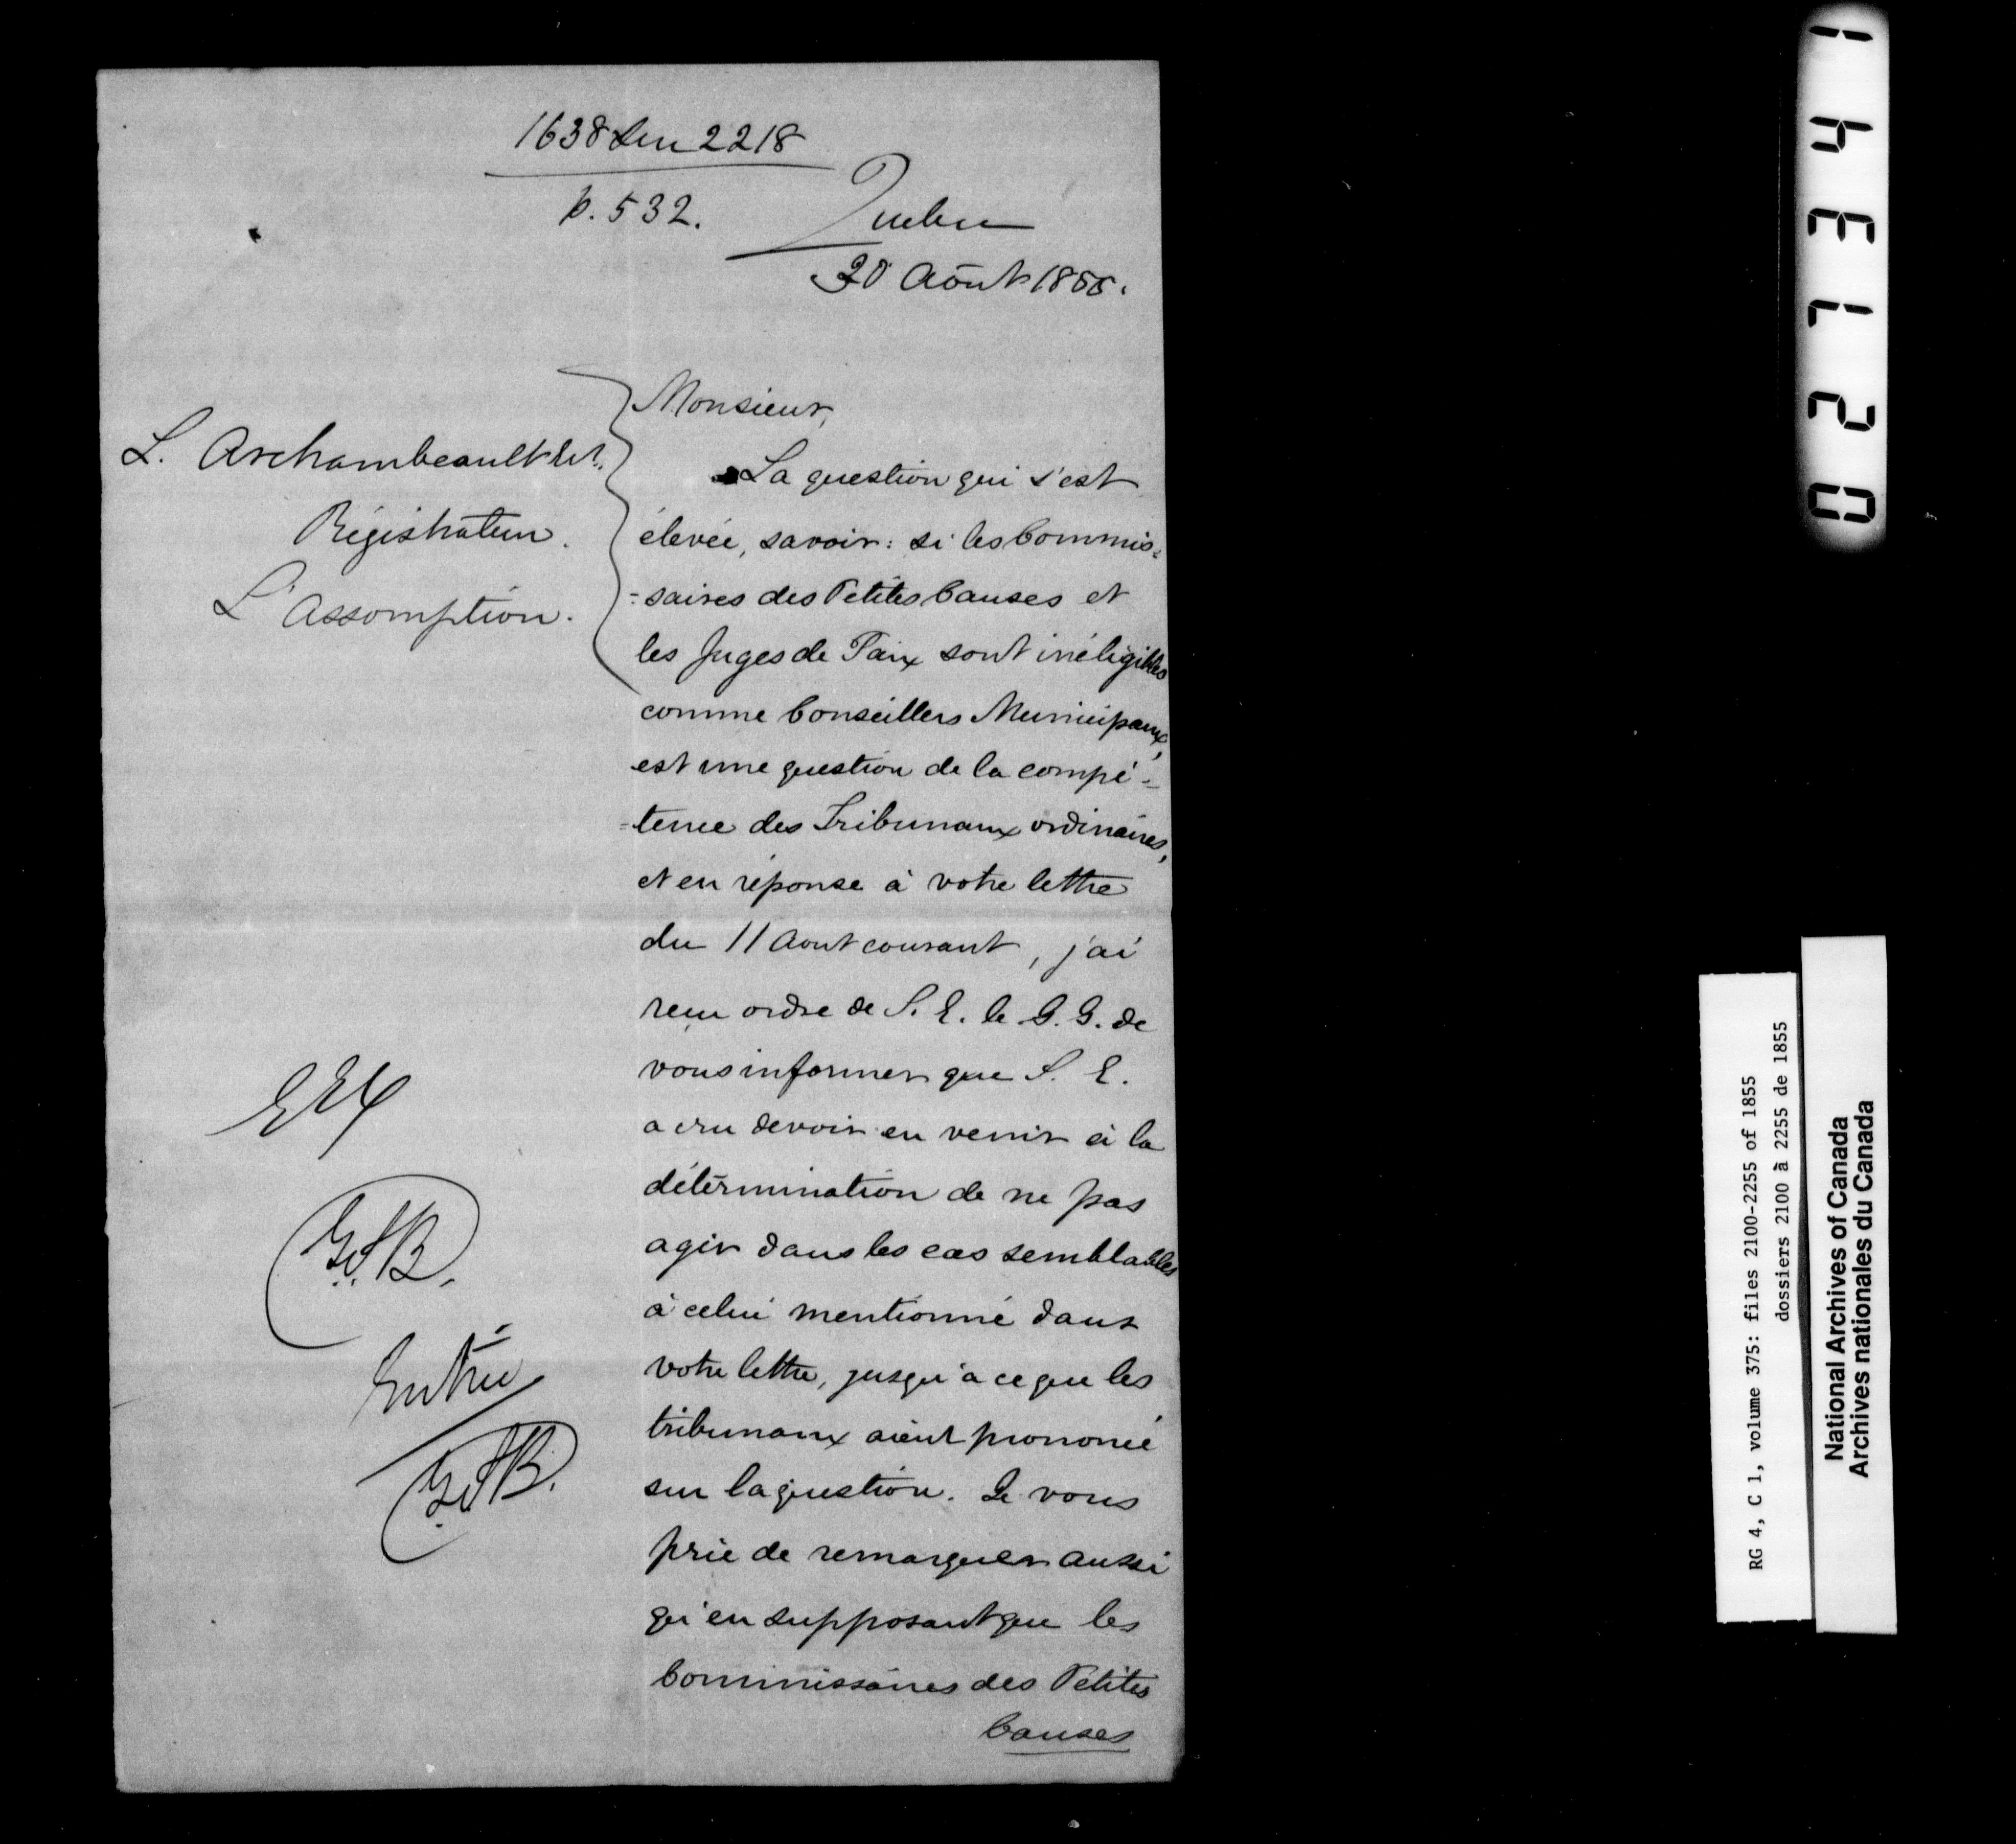 1638 sur 2218
p. 532.
Quebec
20 Août 1855.
L. Archambeault
Régistrateur.
L'Assomption.
Monsieur,
La question qui s'est
élevée, savoir: si les Commis=
=saires des Petites Causes et
les Juges de Paix sont inéligibles
comme Conseillers Municipaux,
est une question de la compé=
=tence des Tribunaux ordinaires,
et en réponse à votre lettre
du 11 Aout courant, j'ai
reçu ordre de S. E. le G. G. de
vous informer que S. E.
a cru devoir en venir à la
détermination de ne pas
agir dans les cas semblables
à celui mentionné dans
votre lettre, jusqu'à ce que les
tribunaux aient prononcé
sur la question. Je vous
prie de remarquer aussi
qu'en supposant que les
Commissaires des Petites
Causes
Entrée
024341
RG 4, C 1, volume 375: files 2100-2255 of 1855
dossiers 2100 à 2255 de 1855
National Archives of Canada
Archives nationales du Canada